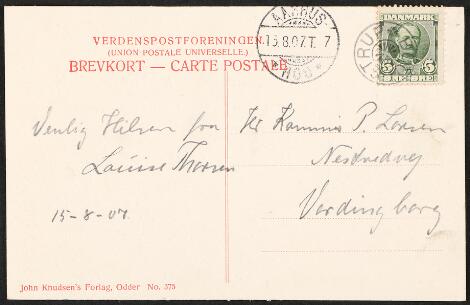 VERDENSPOSTFORENINGEN.
(UNION POSTALE UNIVERSELLE.)
BREVKORT — CARTE POSTALE
AARHUS-
15.8.07.T. 7
* HOU *
DANMARK
5 5
Venlig Hilsen fra
Louise
15-8-07.
P. Larsen
Nestvedvej
Vordingborg
John Knudsen's Forlag, Odder No. 375